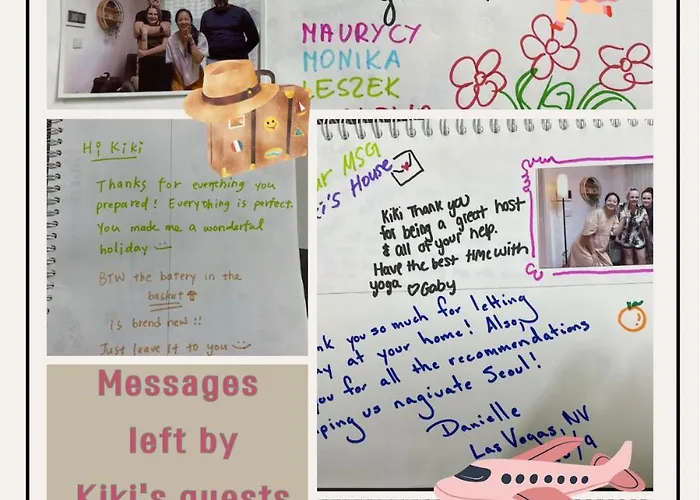 MAURYCY
MONIKA
LESZEK
Hi Kiki
Thanks for everything you
prepared! Everything is perfect.
You made me a wonderful
holiday
BTW the batery in the
basket
is brend new!!
Just leave it to you
MSG
House
Kiki Thank you
for being a great host
& all of your help.
Have the best time with
yoga ♡Gaby
you so much for letting
at your home! Also,
for all the recommendations
us nagivate Seoul!
Danielle
Las Vegas, NV
Messages
left by
Kiki's guests